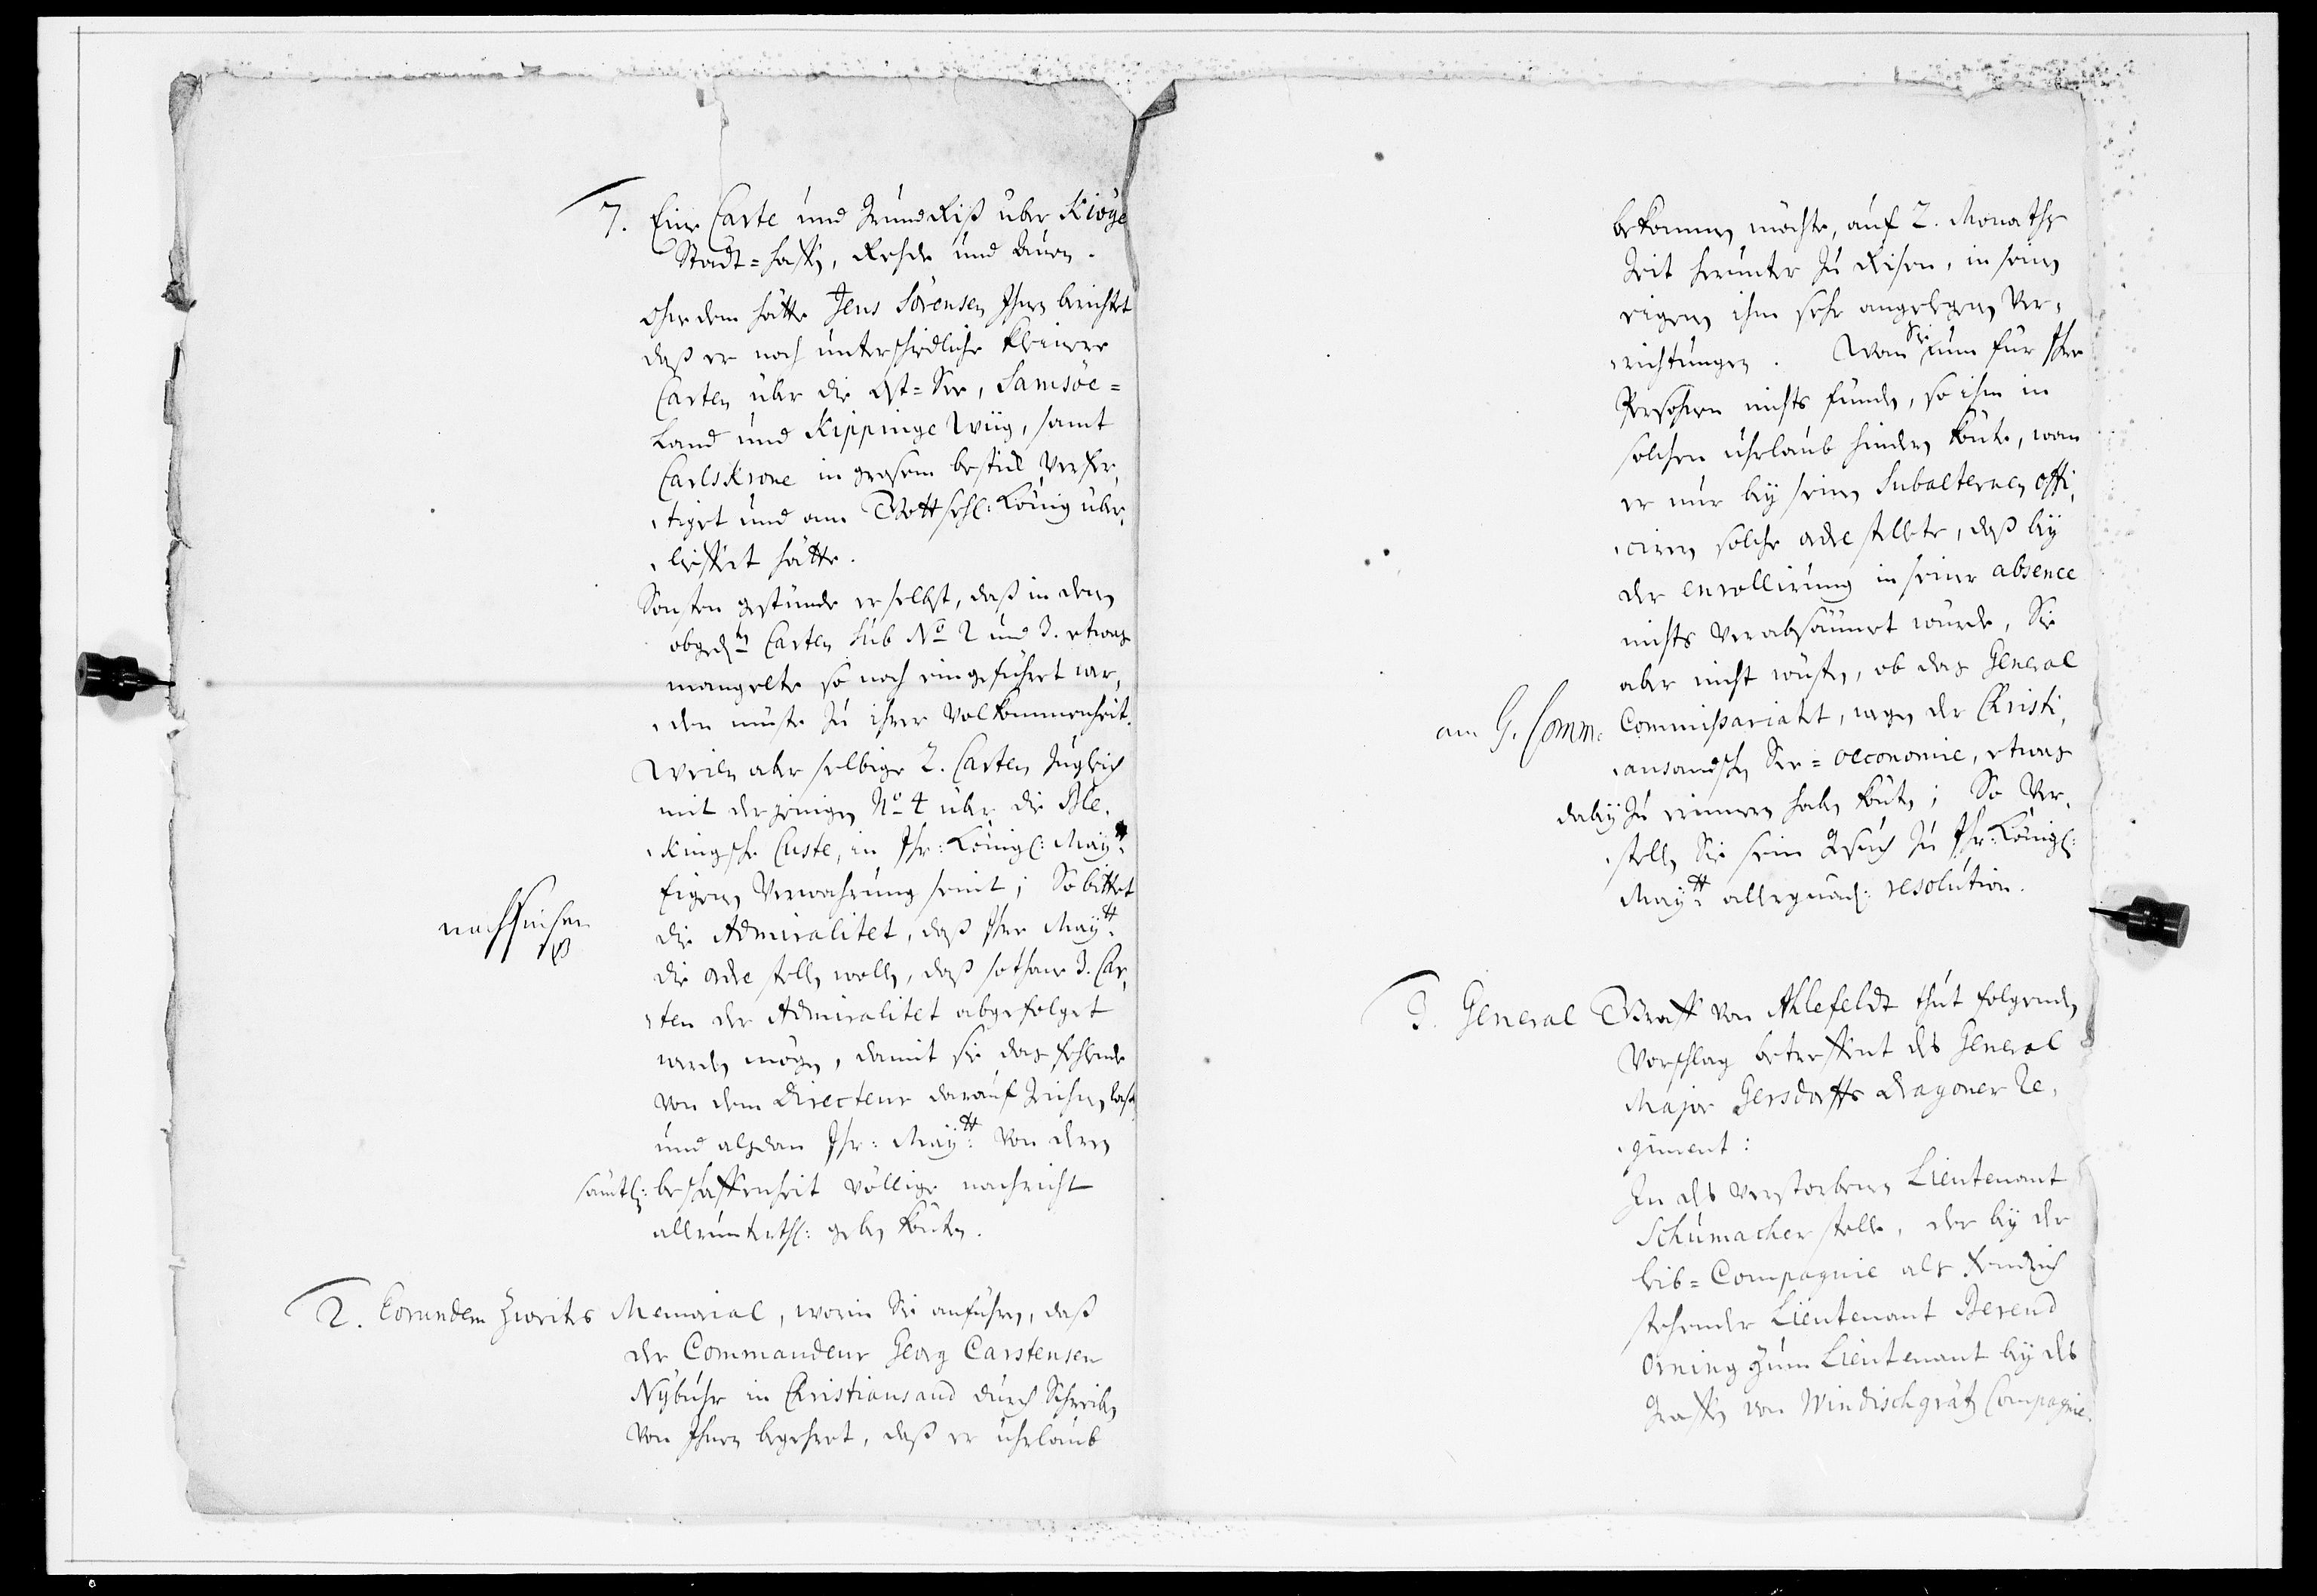 7. Eine Carte und Grund Riß über Kiöge
Stadt-haffen, Rehde und Auen.
Ohne dem hätte Jens Sörensen Ihnen berichtet
daß er noch unterschiedliche kleinere
Carten über die Ost-See, Samsöe-
Land und Kippinge Wiig, samt
CarlsKrone in grosem bestick Verfer-
tiget und am Gottsehl: König über-
liefert hätte.
Sonsten gestünde er selbst, daß in denen
obged:n Carten sub No 2 und 3. etwas
mangelte so noch eingeführet wer-
den müste zu ihrer Volkommenheit.
Weilen aber selbige 2. Carten zugleich
mit derjenigen No 4 über die Ble-
kingsche Custe, in Ihr: Königl: Maytt:
Eigenen Verwahrung seint; So bittet
die Admiralitet, daß Ihre Maytt:
nachsuchen
die ordre stellen wollen, daß sothane 3. Car-
ten der Admiralitet abgefolget
werden mögen, damit sie das fehlende
von dem Directeur darauf Zeichnen lasen
und alsdan Ihr: Maytt: von deren
sämtl: beschaffenheit völlige nachricht
allerunterth: geben könten.
2. Eorundem Zweites Memorial, worin Sie anführen, daß
der Commandeur Georg Carstensen
Nybuhr in Christiansand durch Schreiben
von Ihnen begehret, daß er uhrlaub
bekommen möchte, auf 2. Monaths
Zeit herunter zu Reisen, in seinen
eigenen ihm sehr angelegenen Ver-
richtungen. Wan Sie nun für Ihre
Persohnen nichts funden, so ihm in
solchen uhrlaub hindern könte, wan
er nur bey seinen Subalternen Offi-
cirern solche ordre stellete, daß bey
der enrollirung in seiner absence
nichts verabsäumet würde, Sie
aber nicht wüsten, ob das General
am G. Comm. Commissariatet, wegen der Christi-
ansandschen See-oeconomie, etwas
dabey zu erinnern haben könten; So Ver-
stellen Sie sein Gesuch zu Ihr: Königl:
Maytt: allergnäd: resolution.
3. General Graff von Ahlefeldt thut folgenden
Vorschlag betreffent des General
Major Gersdorffs Dragoner Re-
giment:
In des verstorbenen Lieutenant
Schumacher stelle, der bey der
Leib-Compagnie als Fendrich
stehender Lieutenant Berend
Orning zum Lieutenant bey des
Graffen von Windischgrätz Compagnie.